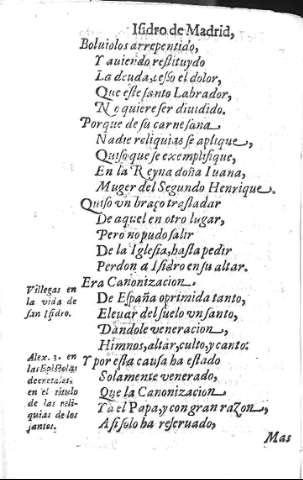 Iſidro de Madrid,
Boluiolos arrepentido,
Y auiendo reſtituydo
La deuda, ceſsò el dolor,
Que eſte ſanto Labrador,
No quiere ſer diuidido.
Porque de ſu carne ſana
Nadie reliquias ſe aplique,
Quiſo que ſe exemplifique,
En la Reyna doña Iuana,
Muger del Segundo Henrique.
Quiſo vn braço trasladar
De aquel en otro lugar,
Pero no pudo ſalir
De la Igleſia, haſta pedir
Perdon a Iſidro en ſu altar.
Era Canonizacion
De España oprimida tanto,
Eleuar del ſuelo vn ſanto,
Dandole veneracion,
Himnos, altar, culto, y canto:
Y por eſta cauſa ha eſtado
Solamente venerado,
Que la Canonizacion
Ya el Papa, y con gran razon,
A ſi ſolo ha reſeruado,
Mas
Villegas en
la vida de
ſan Iſidro.
Alex. 3. en
las Epiſtolas
decretales,
en el titulo
de las reli-
quias de los
ſantos.